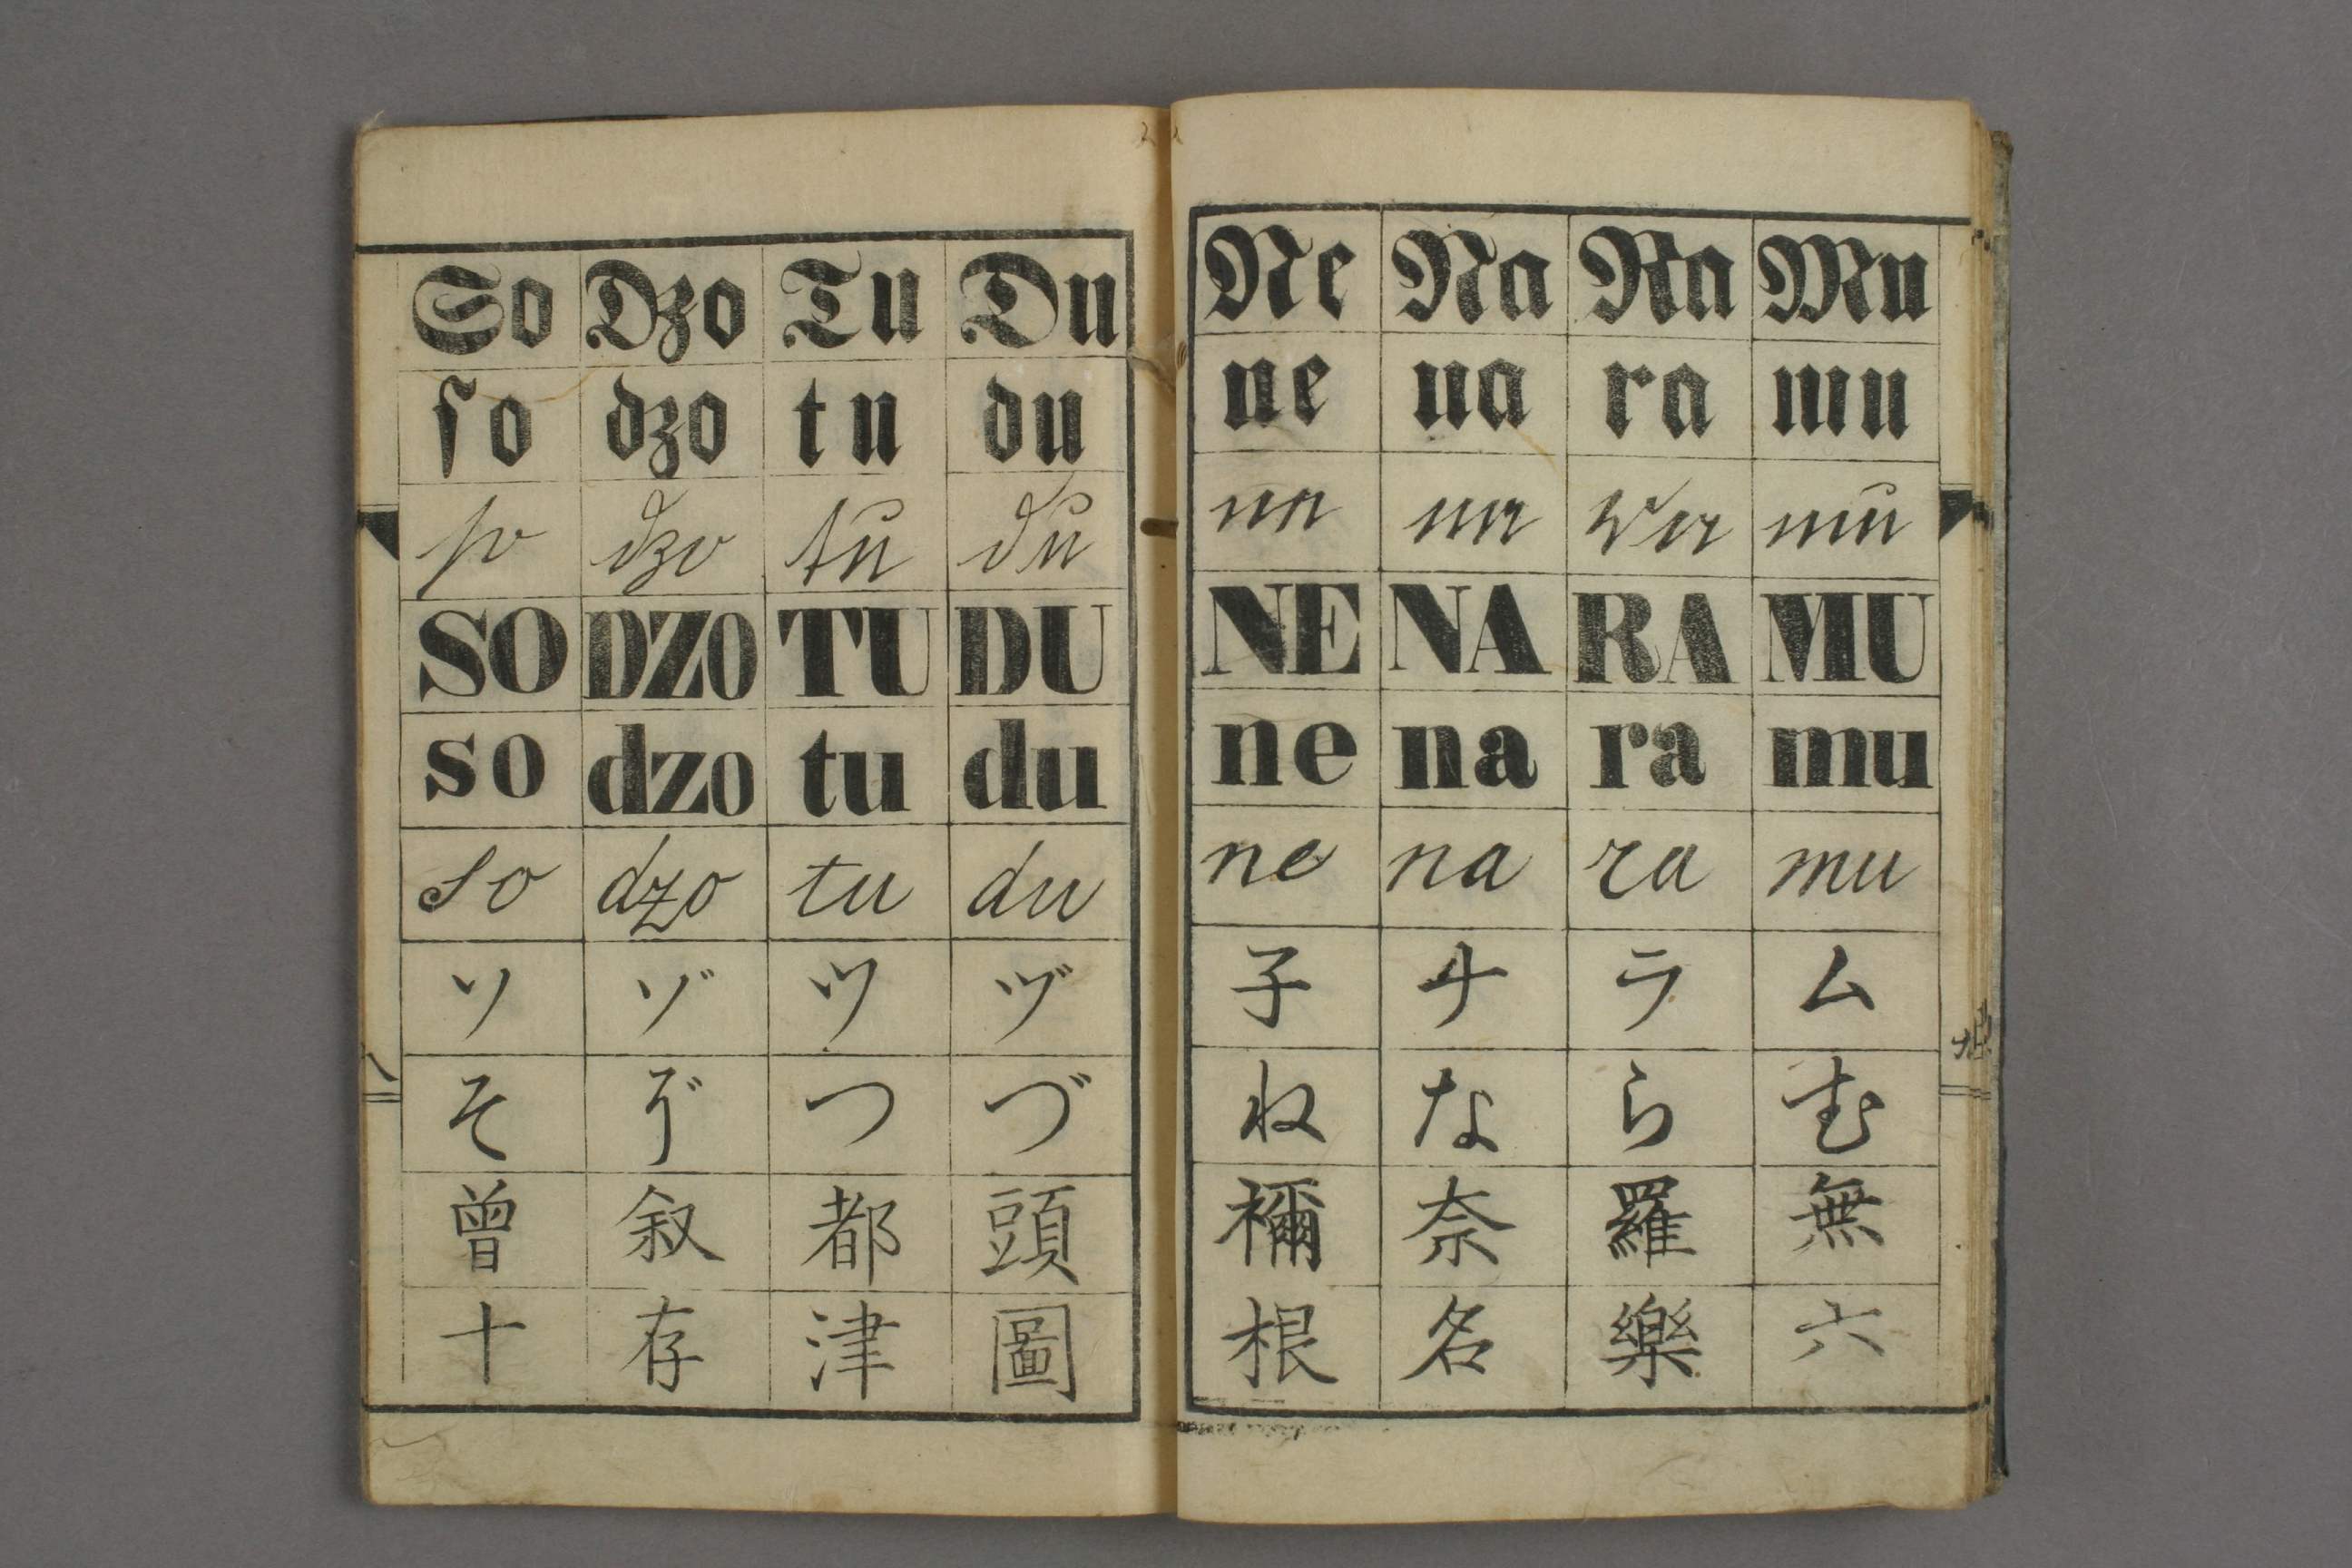 So Dzo Tu Du
ſo dzo tu du
ſo dzo tu du
SO DZO TU DU
so dzo tu du
so dzo tu du
ソ ゾ ツ ヅ
そ ぞ つ づ
曾 叙 都 頭
十 存 津 圖
八
Ne Na Ra Mu
ne na ra mu
ne na ra mu
NE NA RA MU
ne na ra mu
ne na ra mu
子 ナ ラ ム
ね な ら む
禰 奈 羅 無
根 名 樂 六